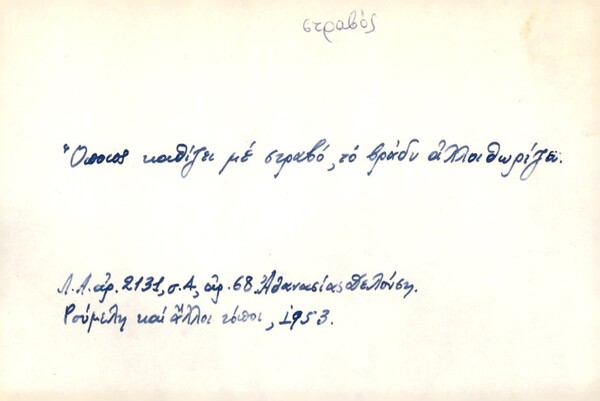 στραβός
Ὅποιος καθίζει μέ στραβό, τό βράδυ ἀλλοιθωρίζει.
Λ.Α. ἀρ. 2131, σ. 4, ἀρ. 68 Ἀθανασίας Δελούση.
Ρούμελη καί ἄλλοι τόποι, 1953.